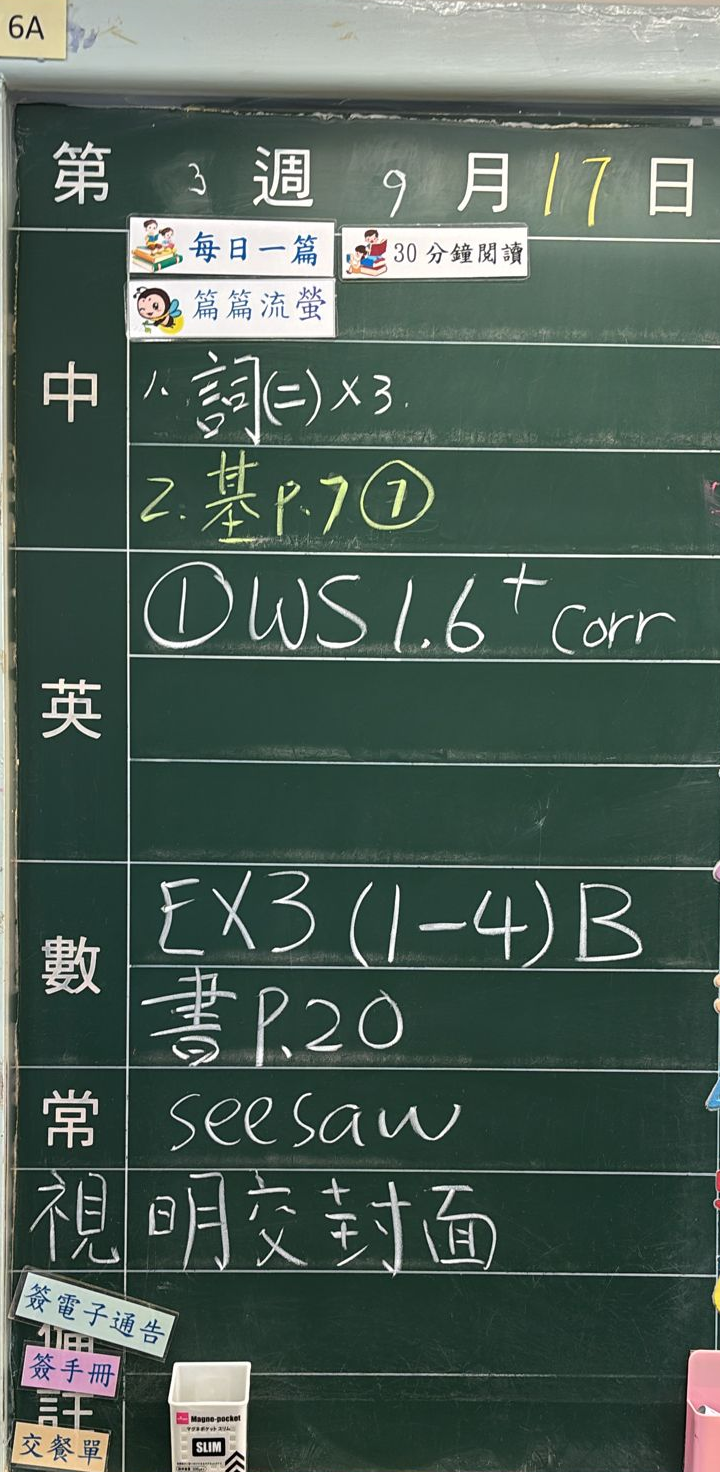 6A
第 3 週 9 月 17 日
每日一篇 30分鐘閱讀
篇篇流螢
中
1. 詞(二)×3.
2. 基P.7⑦
英
①WS 1.6 + corr
數
EX3 (1-4) B
書P.20
常 seesaw
視 明交封面
備註
簽電子通告
簽手冊
交餐單
Magno-pocket
マグネポケット スリム
SLIM